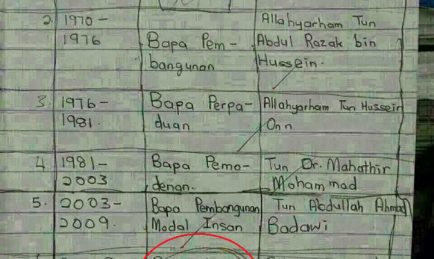 2. 1970 - Allahyarham Tun
1976 Bapa Pem- Abdul Razak bin
bangunan Hussein.
3. 1976 - Bapa Perpa- Allahyarham Tun Hussein
1981. duan Onn
4 1981- Bapa Pemo- Tun Dr. Mahathir
2003 denan. Mohammad
5. 2003- Bapa Pembangunan Tun Abdullah Ahmad
2009. Modal Insan Badawi